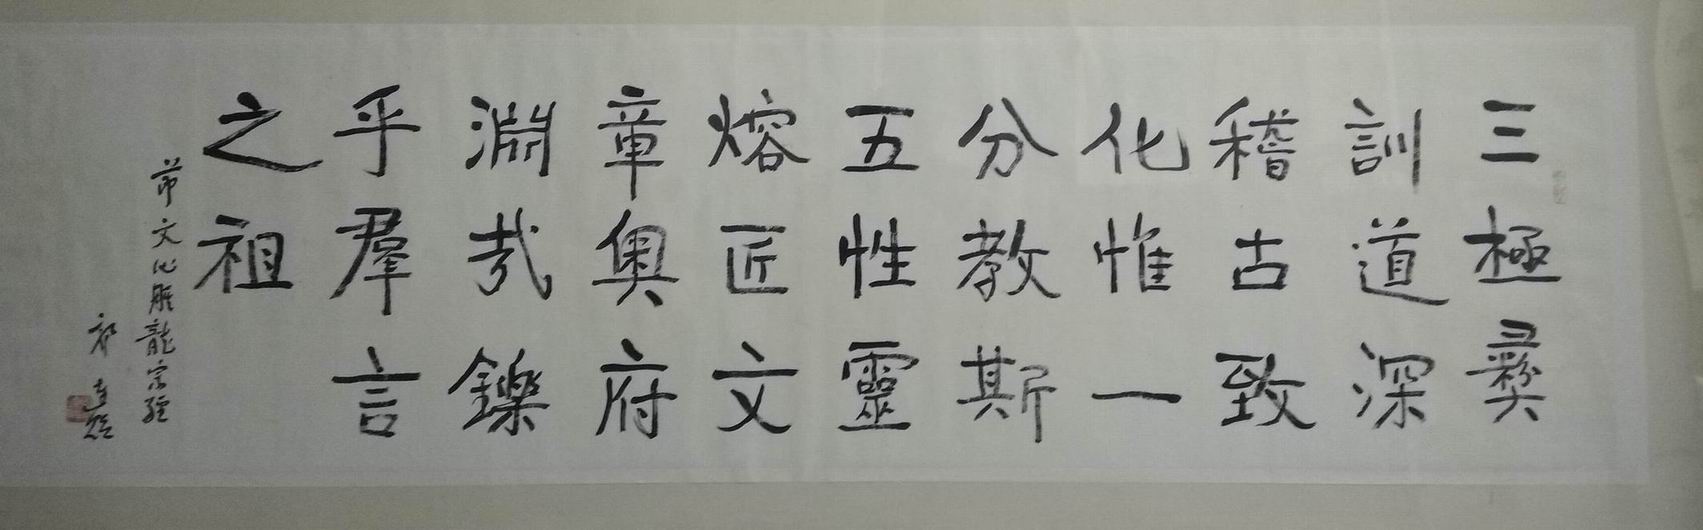 三極彝
訓道深
稽古致
化惟一
分教斯
五性靈
熔匠文
章奧府
淵哉鑠
乎羣言
之祖
節文心雕龍宗經